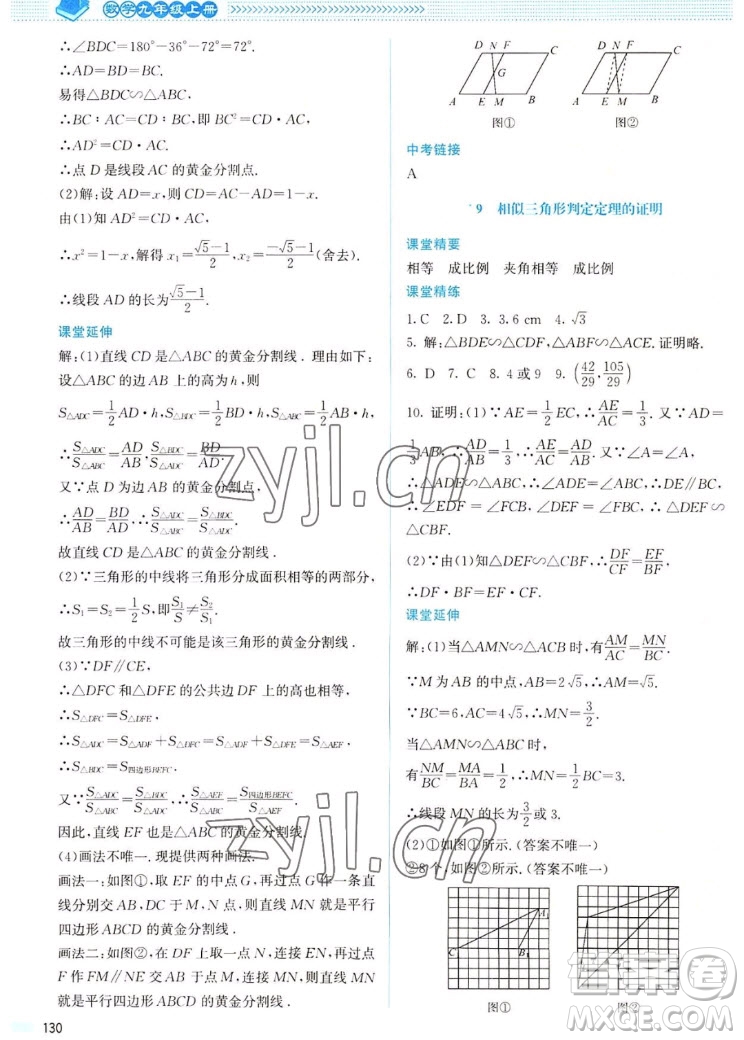 数学九年级上册
∴∠BDC=180°-36°-72°=72°.
∴AD=BD=BC.
易得△BDC∽△ABC.
∴BC∶AC=CD∶BC,即 BC²=CD·AC.
∴AD²=CD·AC.
∴点 D 是线段 AC 的黄金分割点.
(2)解:设 AD=x,则 CD=AC-AD=1-x.
由(1)知 AD²=CD·AC.
∴x²=1-x,解得 x₁=(√5-1)/2,x₂=(-√5-1)/2(舍去).
∴线段 AD 的长为(√5-1)/2.
课堂延伸
解:(1)直线 CD 是△ABC 的黄金分割线. 理由如下:
设△ABC 的边 AB 上的高为 h,则
S△ADC=1/2 AD·h,S△BDC=1/2 BD·h,S△ABC=1/2 AB·h,
∴S△ADC/S△ABC=AD/AB,S△BDC/S△ADC=BD/AD.
又∵点 D 为边 AB 的黄金分割点,
∴AD/AB=BD/AD.∴S△ADC/S△ABC=S△BDC/S△ADC.
故直线 CD 是△ABC 的黄金分割线.
(2)∵三角形的中线将三角形分成面积相等的两部分,
∴S₁=S₂=1/2 S,即 S₁/S≠S₂/S₁.
故三角形的中线不可能是该三角形的黄金分割线.
(3)∵DF∥CE,
∴△DFC 和△DFE 的公共边 DF 上的高也相等,
∴S△DFC=S△DFE,
∴S△ADC=S△ADF+S△DFC=S△ADF+S△DFE=S△AEF,
∴S△BDC=S四边形BEFC.
又∵S△ADC/S△ABC=S△BDC/S△ADC,∴S△AEF/S△ABC=S四边形BEFC/S△AEF.
因此,直线 EF 也是△ABC 的黄金分割线.
(4)画法不唯一. 现提供两种画法:
画法一:如图①,取 EF 的中点 G,再过点 G 作一条直
线分别交 AB,DC 于点 M,N,则直线 MN 就是平行
四边形 ABCD 的黄金分割线.
画法二:如图②,在 DF 上取一点 N,连接 EN,再过点
F 作 FM∥NE 交 AB 于点 M,连接 MN,则直线 MN
就是平行四边形 ABCD 的黄金分割线.
130
D N F C
G
A E M B
图①
D N F C
A E M B
图②
中考链接
A
*9 相似三角形判定定理的证明
课堂精要
相等 成比例 夹角相等 成比例
课堂精练
1. C 2. D 3. 3.6 cm 4. √3
5. 解:△BDE∽△CDF,△ABF∽△ACE. 证明略.
6. D 7. C 8. 4或9 9. (42/29,105/29)
10. 证明:(1)∵AE=1/2 EC,∴AE/AC=1/3. 又∵AD=
1/3 AB,∴AD/AB=1/3,∴AD/AB=AE/AC. 又∵∠A=∠A,
∴△ADE∽△ABC,∴∠ADE=∠ABC,∴DE∥BC,
∴∠EDF=∠FCB,∠DEF=∠FBC,∴△DEF∽
△CBF.
(2)∵由(1)知△DEF∽△CBF,∴DF/CF=EF/BF.
∴DF·BF=EF·CF.
课堂延伸
解:(1)当△AMN∽△ACB 时,有AM/AC=MN/BC.
∵M 为 AB 中点,AB=2√5,∴AM=√5.
∵BC=6,AC=4√5,∴MN=3/2. 当△AMN∽△ABC 时,
有NM/BC=MA/BA=1/2,∴MN=1/2 BC=3.
∴线段 MN 的长为3/2或3.
(2)①如图①所示.(答案不唯一)
②8个,如图②所示.(答案不唯一)
A₁
C B₁
图①
图②
zyjl.cn
zyjl.cn
答案圈
MXQE.COM